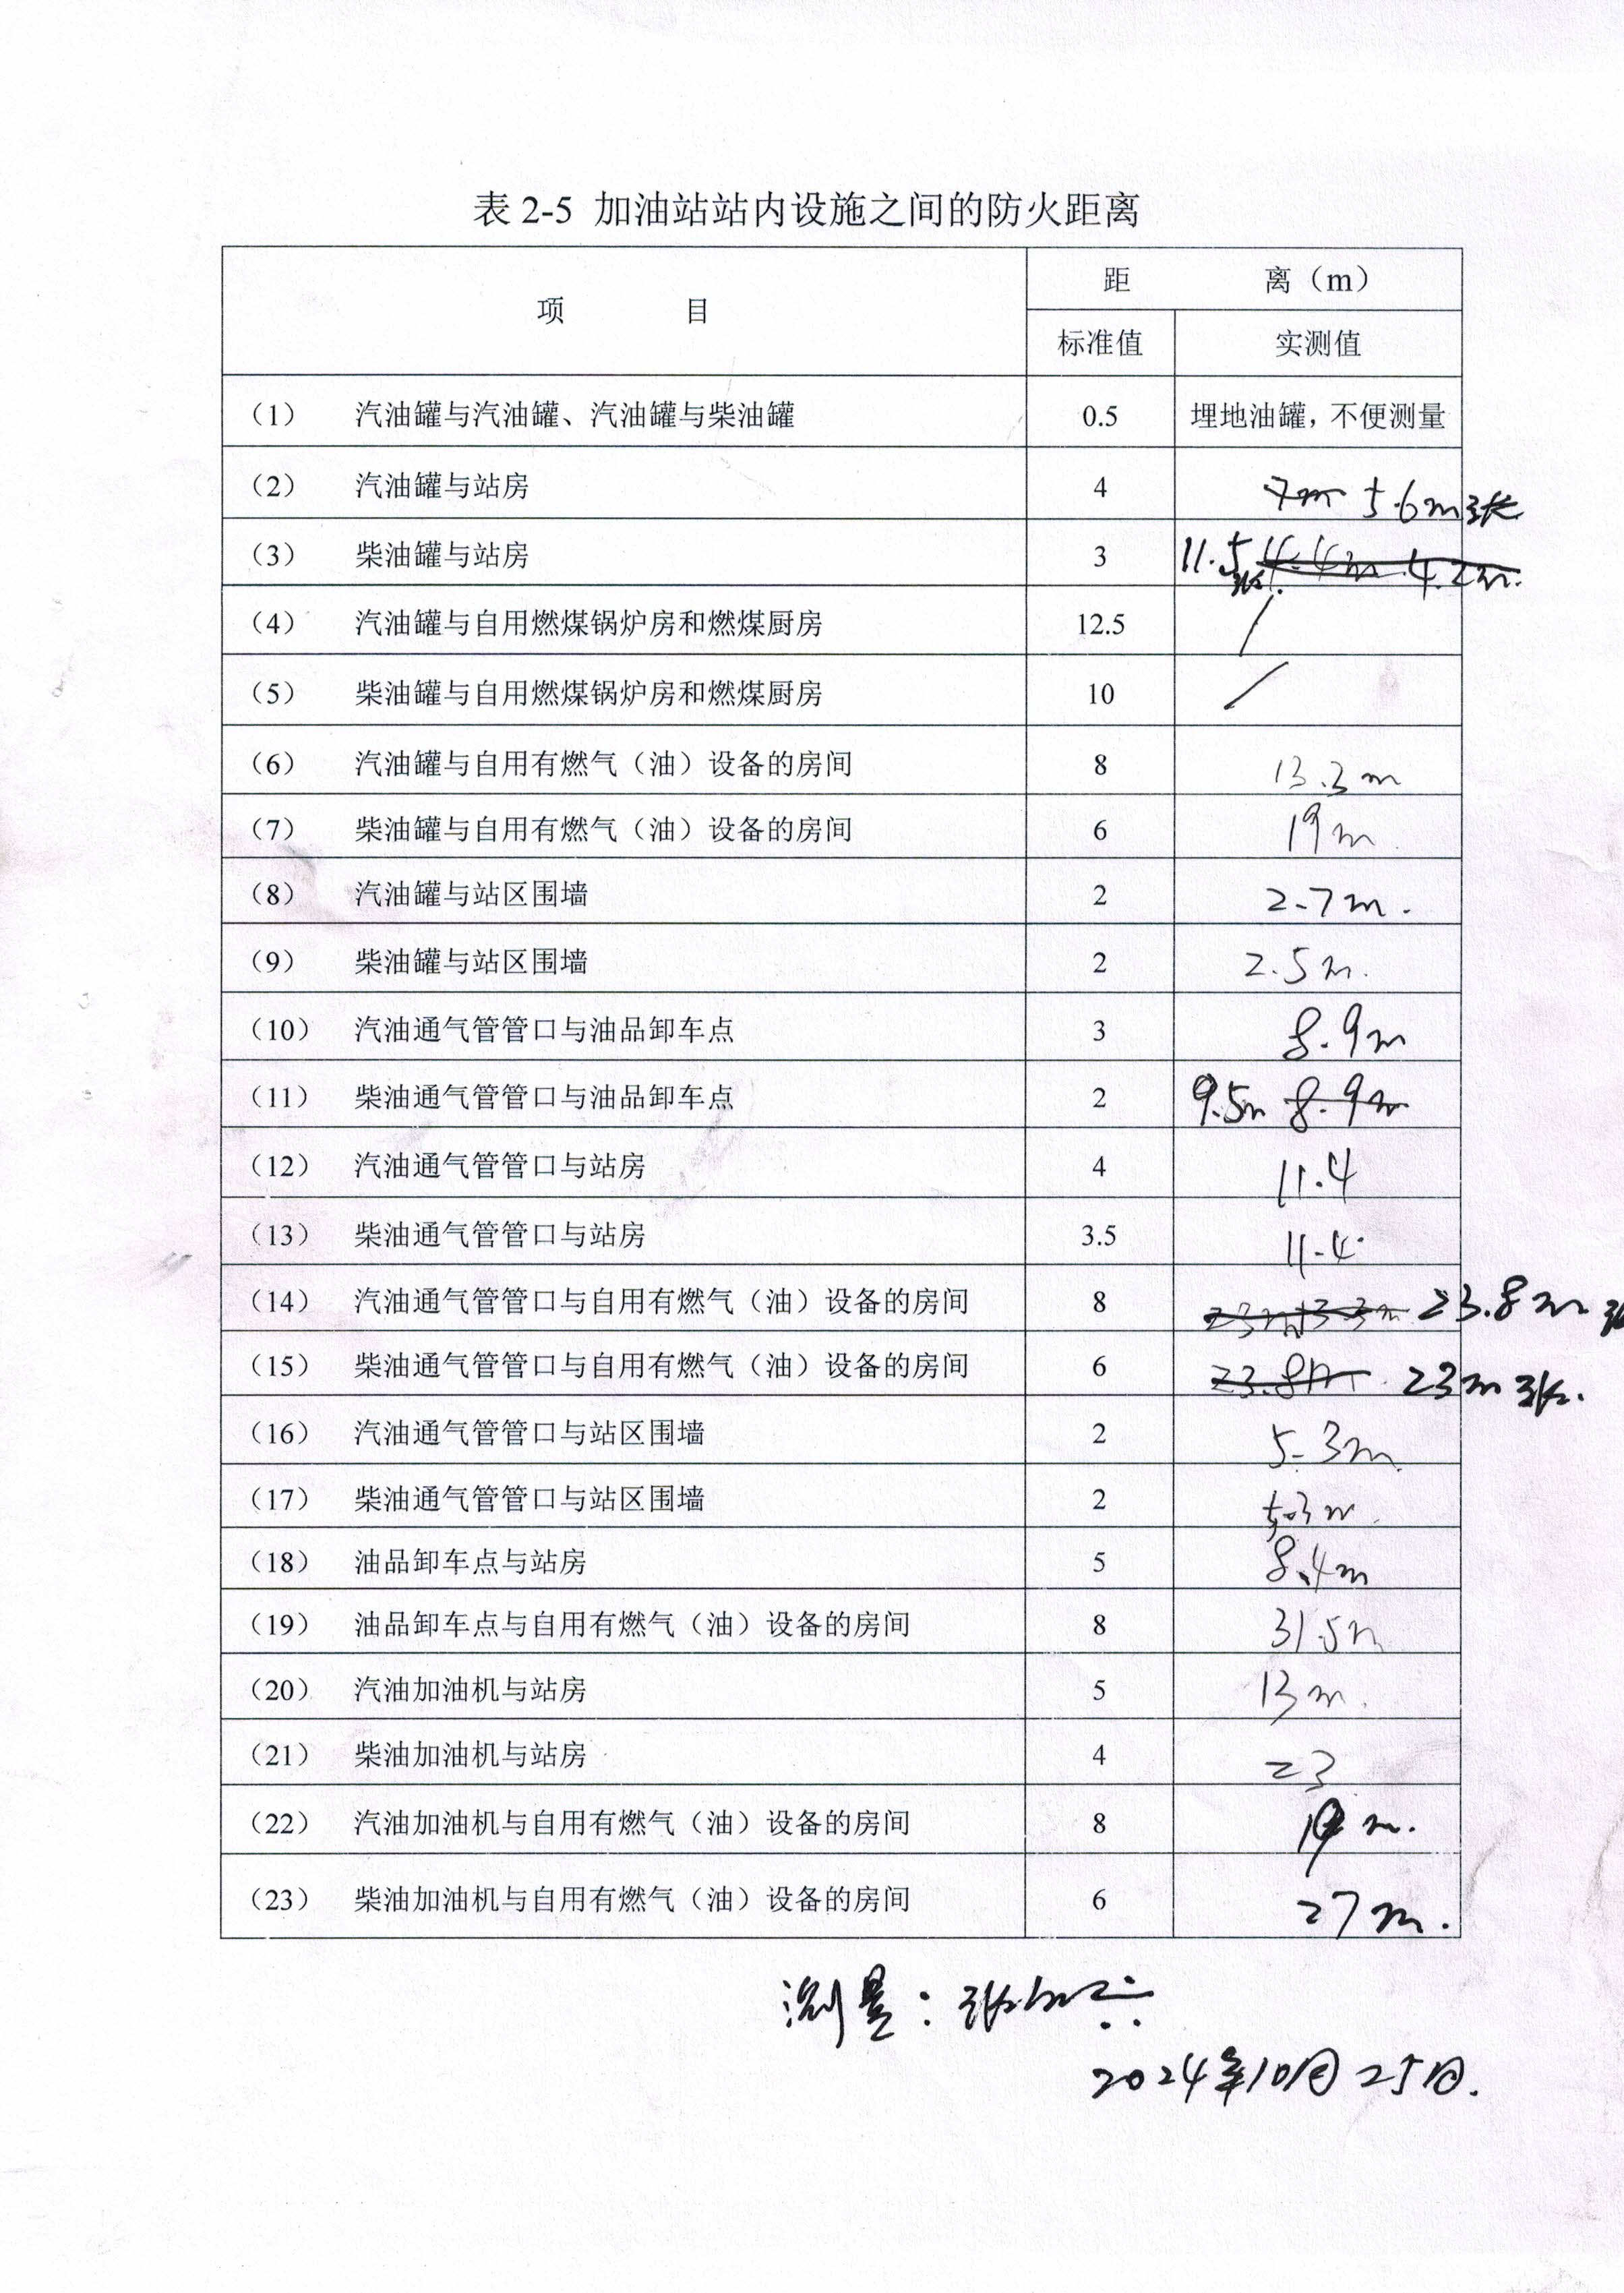 表 2-5 加油站站内设施之间的防火距离
项 目 距 离（m）
标准值 实测值
（1） 汽油罐与汽油罐、汽油罐与柴油罐 0.5 埋地油罐，不便测量
（2） 汽油罐与站房 4 7m 5.6m 张
（3） 柴油罐与站房 3 11.5 张 4.4m 4.2m.
（4） 汽油罐与自用燃煤锅炉房和燃煤厨房 12.5 /
（5） 柴油罐与自用燃煤锅炉房和燃煤厨房 10 /
（6） 汽油罐与自用有燃气（油）设备的房间 8 13.3m
（7） 柴油罐与自用有燃气（油）设备的房间 6 19m
（8） 汽油罐与站区围墙 2 2.7m.
（9） 柴油罐与站区围墙 2 2.5m.
（10） 汽油通气管管口与油品卸车点 3 8.9m
（11） 柴油通气管管口与油品卸车点 2 9.5m 8.9m
（12） 汽油通气管管口与站房 4 11.4
（13） 柴油通气管管口与站房 3.5 11.4
（14） 汽油通气管管口与自用有燃气（油）设备的房间 8 23m 13.3m 23.8m 张
（15） 柴油通气管管口与自用有燃气（油）设备的房间 6 23.8m 23m 张.
（16） 汽油通气管管口与站区围墙 2 5.3m.
（17） 柴油通气管管口与站区围墙 2 5.3m.
（18） 油品卸车点与站房 5 8.4m
（19） 油品卸车点与自用有燃气（油）设备的房间 8 31.5m
（20） 汽油加油机与站房 5 13m.
（21） 柴油加油机与站房 4 23
（22） 汽油加油机与自用有燃气（油）设备的房间 8 m.
（23） 柴油加油机与自用有燃气（油）设备的房间 6 27m.
测量：张
2024年10月25日.